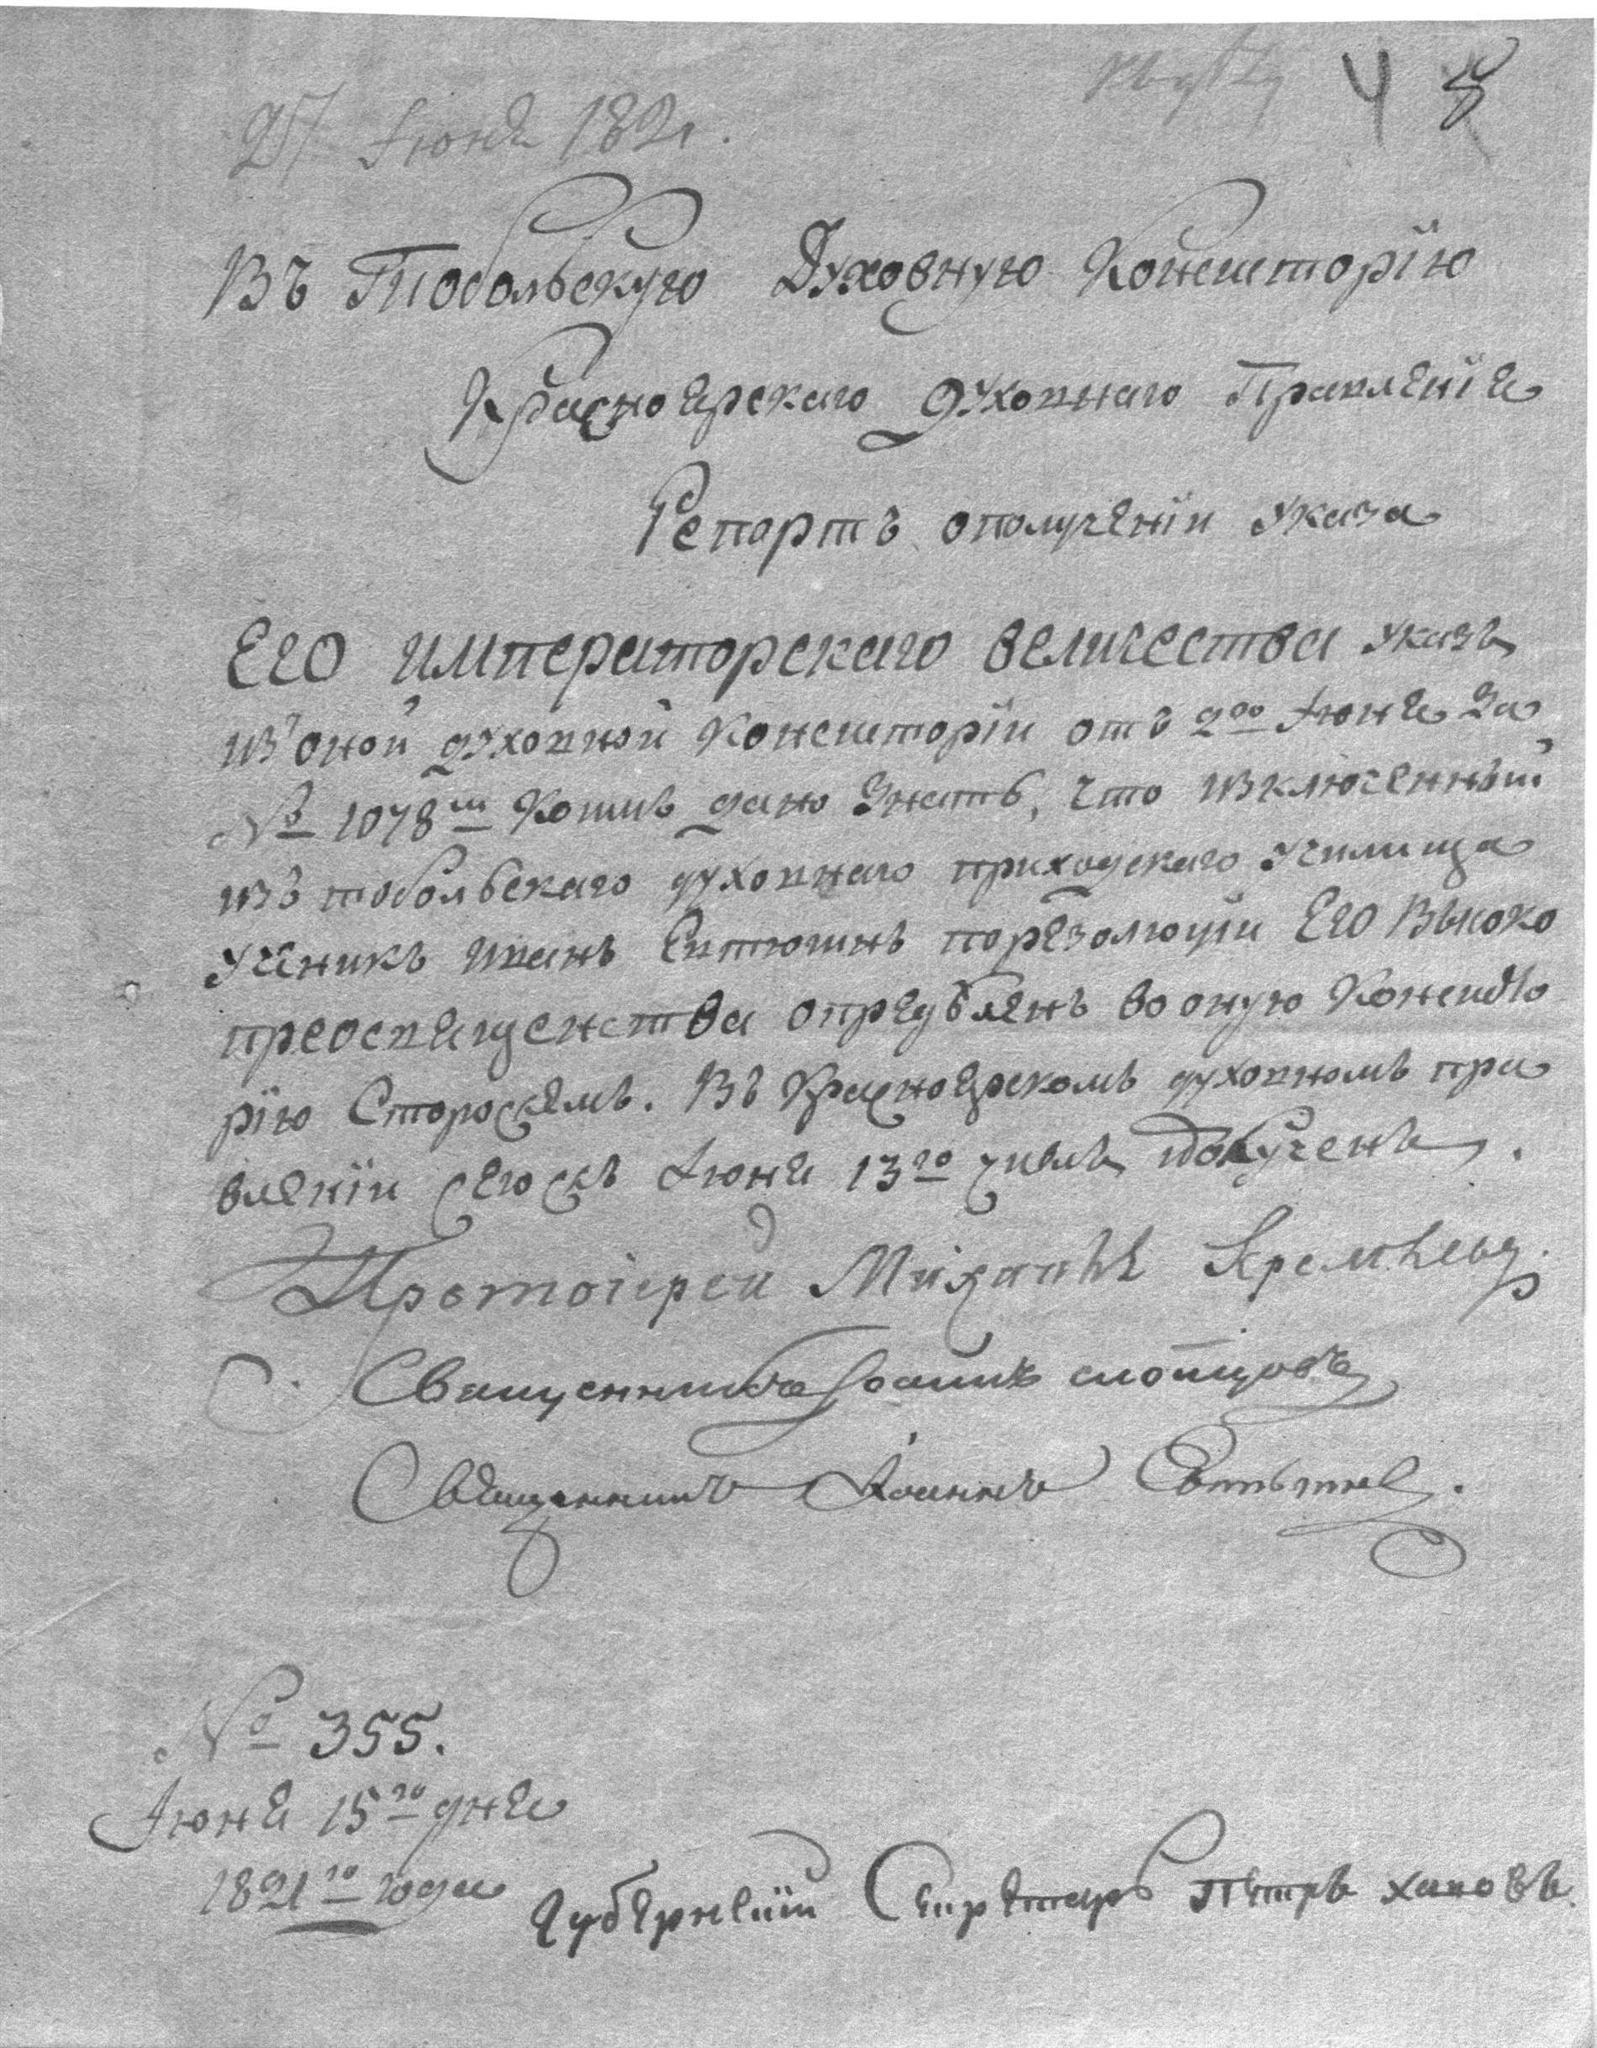 27 Июня 1821.
4
Въ Тобольскую Духовную Консисторїю
Красноярскаго духовнаго Правленїя
Репортъ ополученїи указа
Его императорскаго величества указъ
изъ оной духовной Консисторїи отъ 2го Июня за
№ 1078м Коимъ дано знать, что изключенный
изъ тобольскаго духовнаго приходскаго училища
ученикъ иванъ порезолюцїи Его Высоко
преосвященства опредѣленъ во оную Консисто
рїю Сторожемъ. Въ Красноярскомъ духовномъ пра
вленїи сего жъ Июня 13го числа полученъ.
Протоіерей Михаилъ
Священникъ Іоаннъ слопцовъ
Священникъ Иоаннъ
№ 355.
Июня 15го дня
1821го года
Губернскїй Секретарь Петръ